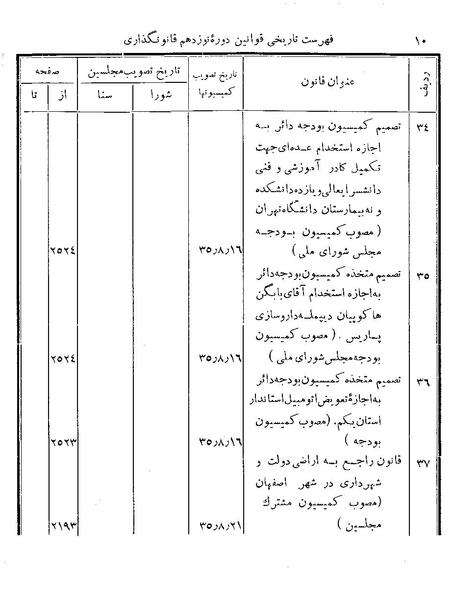 ۱۰ فهرست تاریخی قوانین دورهٔ نوزدهم قانونگذاری
ردیف
عنوان قانون
تاریخ تصویب کمیسیونها
تاریخ تصویب مجلسین
شورا سنا
صفحه
از تا
۳٤ تصمیم کمیسیون بودجه دائر به
اجازه استخدام عده‌ای جهت
تکمیل کادر آموزشی و فنی
دانشسرایعالی و یازده دانشکده
و نه بیمارستان دانشگاه تهران
( مصوب کمیسیون بودجه
مجلس شورای ملی ) ۳۵٫۸٫۱٦ ۲۵۲٤
۳۵ تصمیم متخذه کمیسیون بودجه دائر
به اجازه استخدام آقای بابگن
هاکوپیان دیپلمه داروسازی
پاریس . ( مصوب کمیسیون
بودجه مجلس شورای ملی ) ۳۵٫۸٫۱٦ ۲۵۲٤
۳٦ تصمیم متخذه کمیسیون بودجه دائر
به اجازهٔ تعویض اتومبیل استاندار
استان یکم. (مصوب کمیسیون
بودجه ) ۳۵٫۸٫۱٦ ۲۵۲۳
۳۷ قانون راجع به اراضی دولت و
شهرداری در شهر اصفهان
(مصوب کمیسیون مشترك
مجلسین ) ۳۵٫۸٫۲۱ ۲۱۹۳